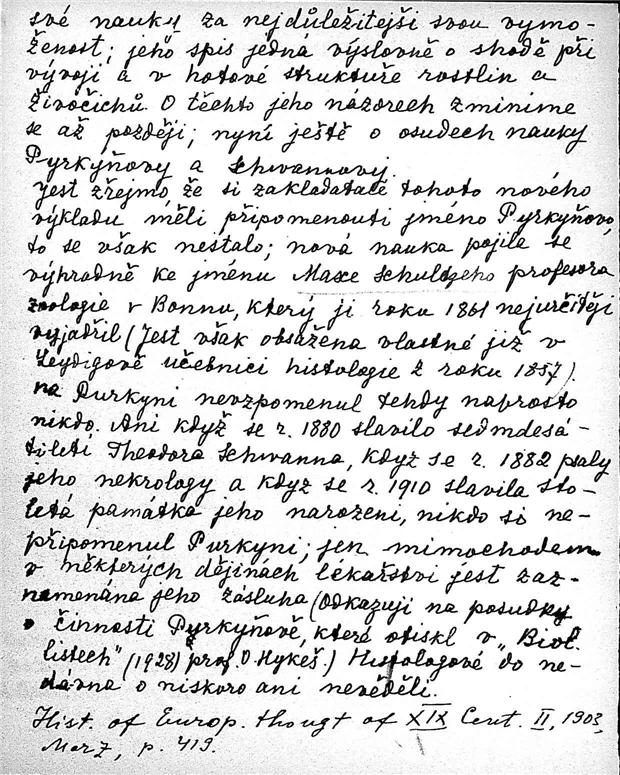 své nauky za nejdůležitější svou vymo-
ženost; jeho spis jedná výslovně o shodě při
vývoji a v hotové struktuře rostlin a
živočichů. O těchto jeho názorech zmíníme
se až později; nyní ještě o osudech nauky
Pyrkyňovy a Schwannovy.
Jest zřejmo, že si zakladatelé tohoto nového
výkladu měli připomenouti jméno Pyrkyňovo,
to se však nestalo; nová nauka pojile se
výhradně ke jménu Maxe Schultzeho profesora
zoologie v Bonnu, který ji roku 1861 nejurčitěji
vyjádřil (Jest však obsažena vlastně již v
Leydigově učebnici histologie z roku 1857).
na Purkyni nevzpomenul tehdy naprosto
nikdo. Ani když se r. 1880 slavilo sedmdesá-
tiletí Theodora Schwanna, když se r. 1882 psaly
jeho nekrology a když se r. 1910 slavila sto-
letá památka jeho narození, nikdo si ne-
připomenul Purkyni; jen mimochodem
v některých dějinách lékařství jest zaz-
namenána jeho zásluha (Odkazuji na posudky
o činnosti Pyrkyňově, které otiskl v "Biol.
listech" (1928) prof. O. Hykeš.) Histologové do ne-
dávna o ní skoro ani nevěděli.
Hist. of Europ. thougt of XIX Cent. II, 1903,
Merz, p. 419.